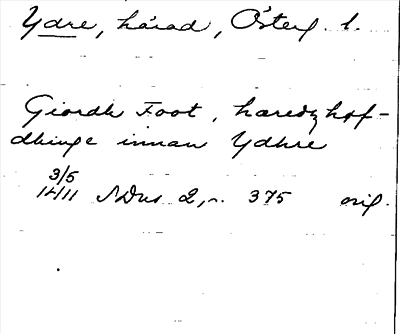 Ydre, härad, Österg. l.
Giordh Foot, haredzhof-
dhinge innan Ydhre
3/5
1411 SDns 2, n. 375 orig.